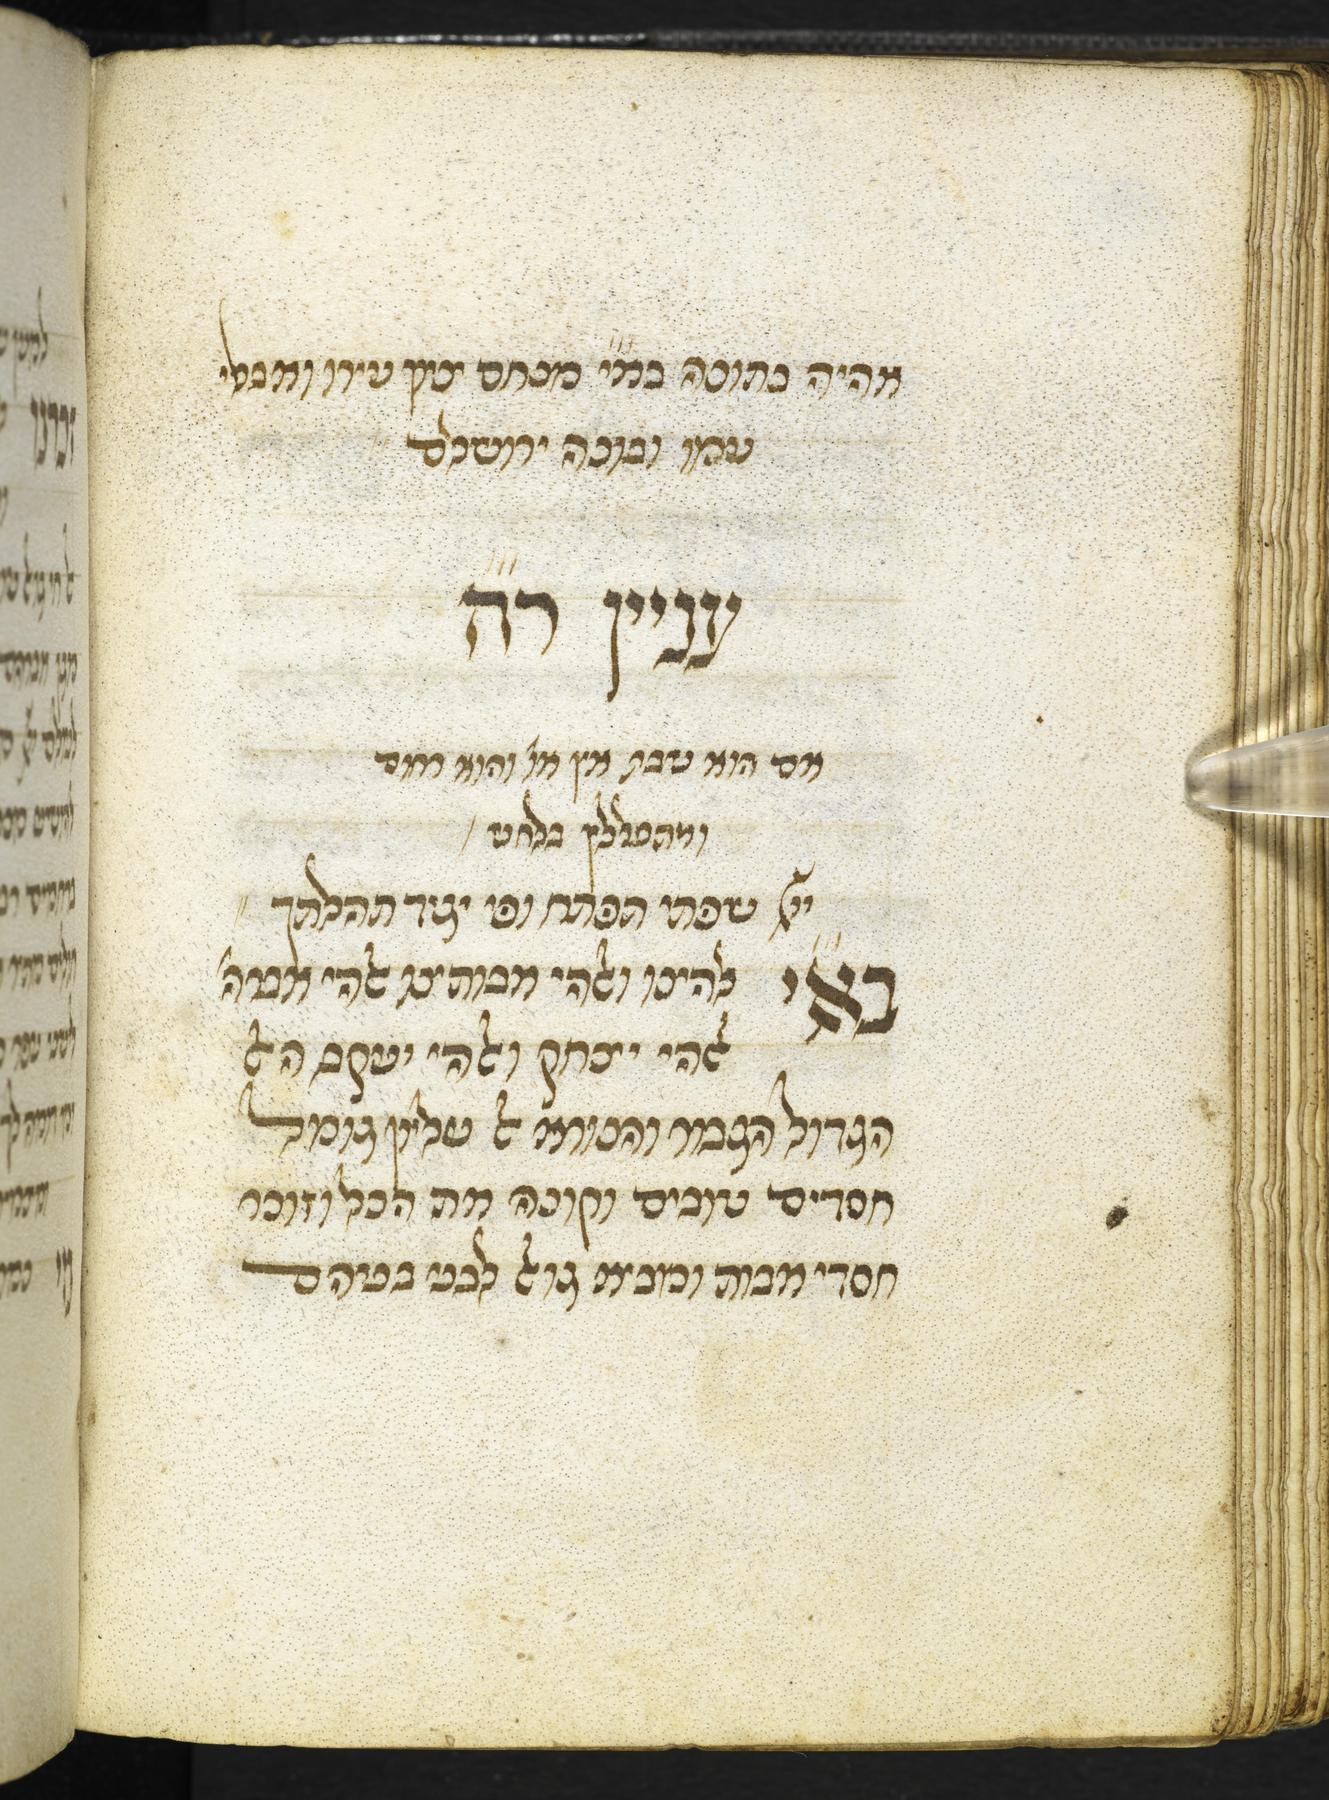 אהיה בתוכה בא"י מנחם ציון עירו ואבלי
עמו ובונה ירושלם
עניין ר"ה
אם הוא שבת אין או' והוא רחום
ומתפללין בלחש
שפתי תפתח ופי יגיד תהלתך
בא"י אלהינו ואלהי אבותינו אלהי אברה'
אלהי יצחק ואלהי יעקב האל
הגדול הגבור והנורא אל עליון גומל
חסדים טובים וקונה את הכל וזוכר
חסדי אבות ומביא גואל לבני בניהם